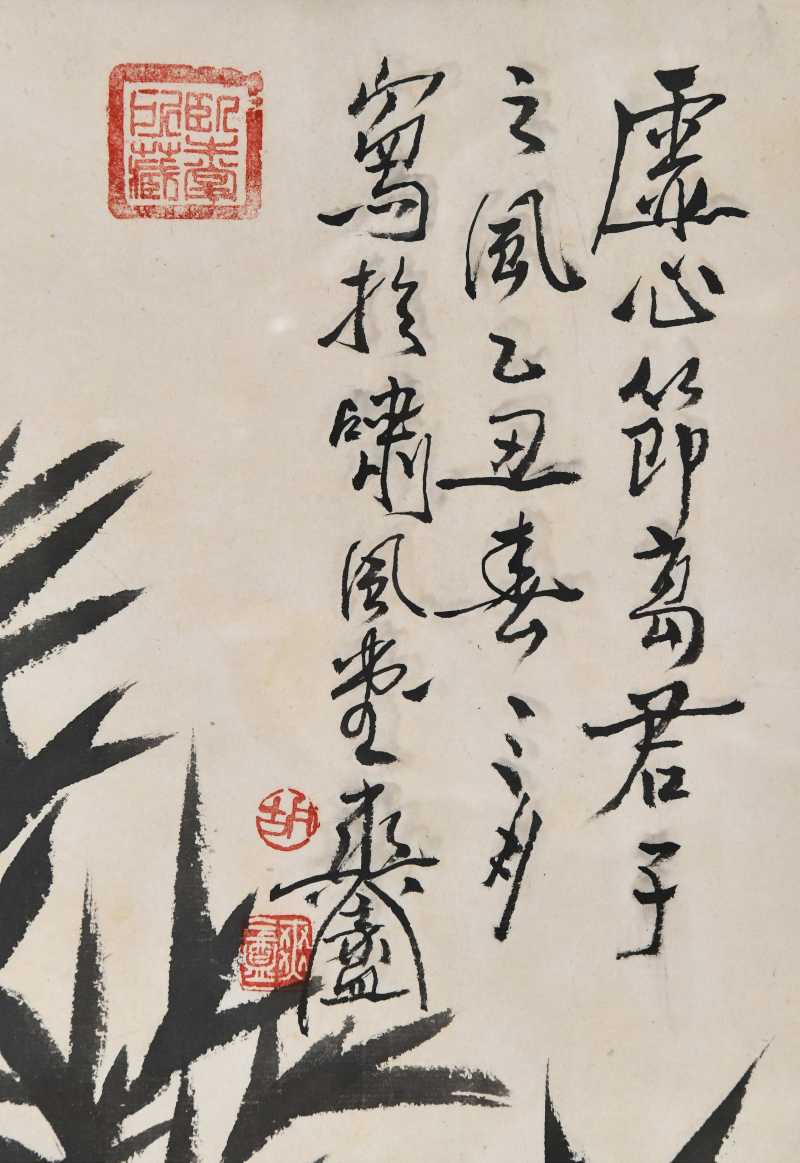 虛心節高君子
之風乙丑春三月
寫於嘯風堂爽盦
胡
爽盦
所藏